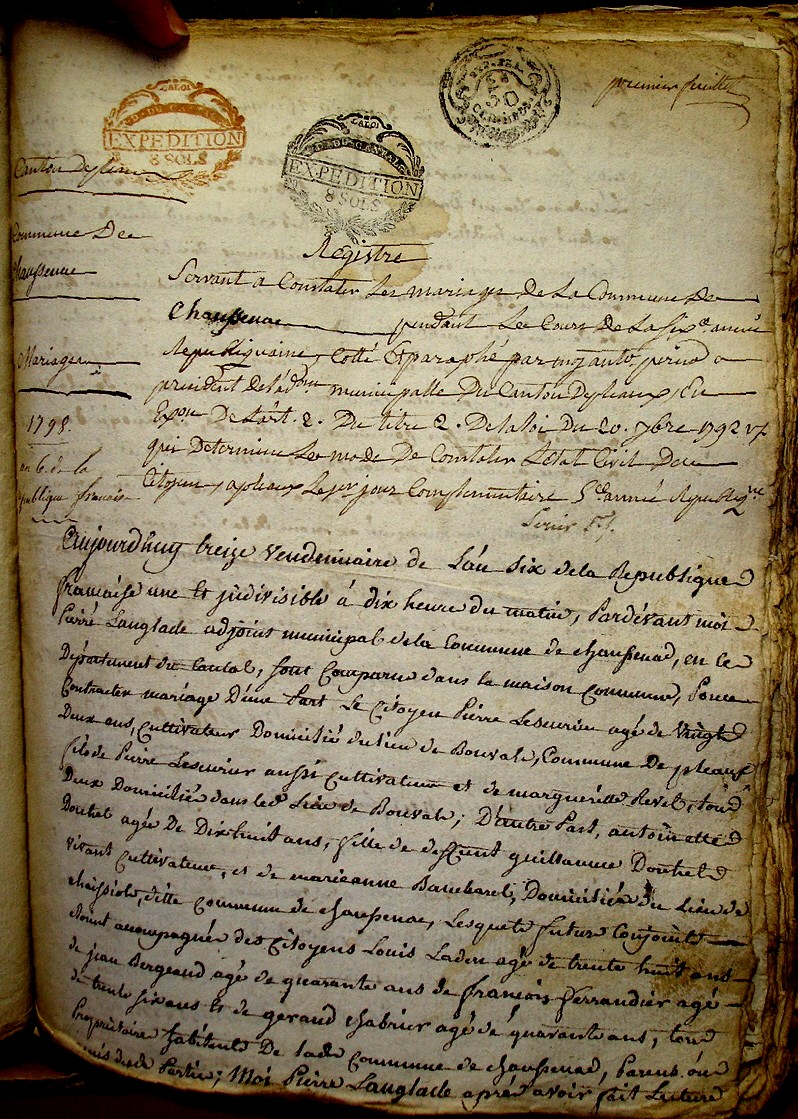 premier feuillet
LA LOI
D. DU CANTAL
EXPEDITION
8 SOLS
LA LOI
D. DU CANTAL
EXPEDITION
8 SOLS
Canton de pleaux
Commune De
chaussenac
Mariages
1798.
an 6 de la
république française
Registre
Servant a Constater Les mariages De La Commune De
Chaussenac pendant Le Cours De La Six.e année
Republiquaine, Cotté Et paraphé par moy
président de l'adon municipalle Du Canton De pleaux, En
Exon De L'art. 2. Du titre 2. De la loi Du 20. 7bre 1792 v.s.
qui Determine Le mode De Constater L'Etat Civil De
Citoyen, a pleaux Le 1er jour Complementaire 5e année Republicne
Aujourdhuy treize vendemiaire de L'an Six de la Republique
francaise une et indivisible à dix heure du matin, Pardévant moi
Pierre Langlade adjoint municipal de la Commune de chaussenac, en ce
Département du Cantal, sont Comparu dans la maison Commune, Pour
Contracter mariage D'une Part Le Citoyen Pierre Lesmurier agé de vingt
Deux ans, Cultivateur Domicilié du lieu de Bouval, Commune De pleaux
fils de Pierre Lesmurier aussi Cultivateur et de margueritte Revel, tous
Deux Domiciliés dans le Lieu de Bouval; D'autre Part, antoinette
Douhet agée De Dix huit ans, fille de deffunt guillaume Douhet
vivant Cultivateur, et de marieanne Domiciliée du Lieu de
dite Commune de chaussenac, Lesquels futurs Conjoints
étoint accompagnés des Citoyens Louis Ladou agé de trente huit ans
de jean Bergeaud agé de quarante ans de françois ferrandier agé
de trente six ans et de geraud Chabrier agé de quarante ans, tous
Propriétaires habitants De lade Commune de chaussenac, Parens ou
amis des de Parties; Moi Pierre Langlade après avoir fait Lecture